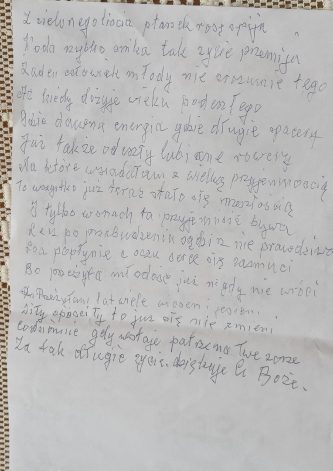 Z zielonego liścia ptanek rosę spija
Woda szybko znika tak życie przemija
Żaden człowiek młody nie zrozumie tego
Aż kiedy dożyje wieku podeszłego
Gdzie dawna energia gdzie długie spacery
Już także odeszły lubiane rowery
Na które wsiadałam z wielką przyjemnością
To wszystko już teraz stało się przeszłością
I tylko w snach ta przyjemność bywa
Lecz po przebudzeniu radość nie prawdziwa
Łza popłynie z oczu serce się zasmuci
Bo przeżyta młodość już nigdy nie wróci
Przeżyłam lat wiele wiosen i jesieni
Siły opuściły to już się nie zmieni
Codziennie gdy wstaję patrzę na Twe zorze
Za tak długie życie dziękuję Ci Boże.